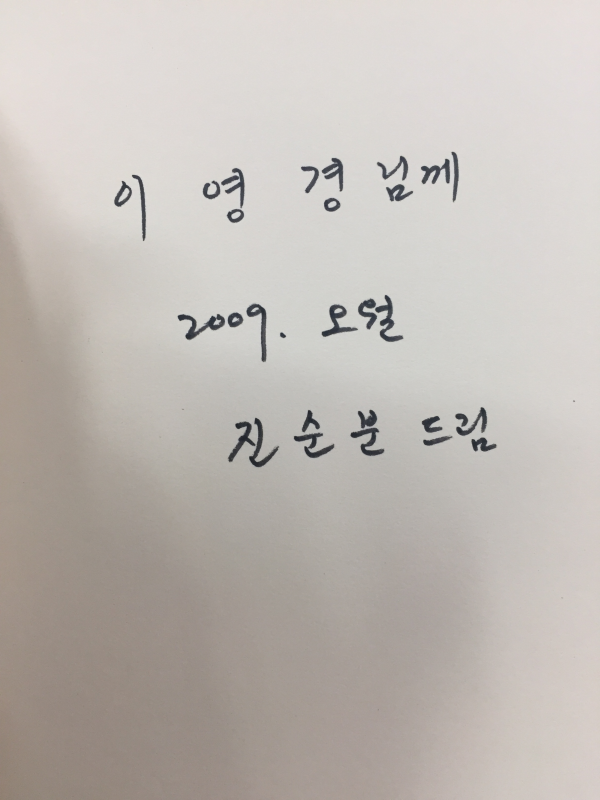 이 영 경 님께
2009. 오월
진 순 분 드림